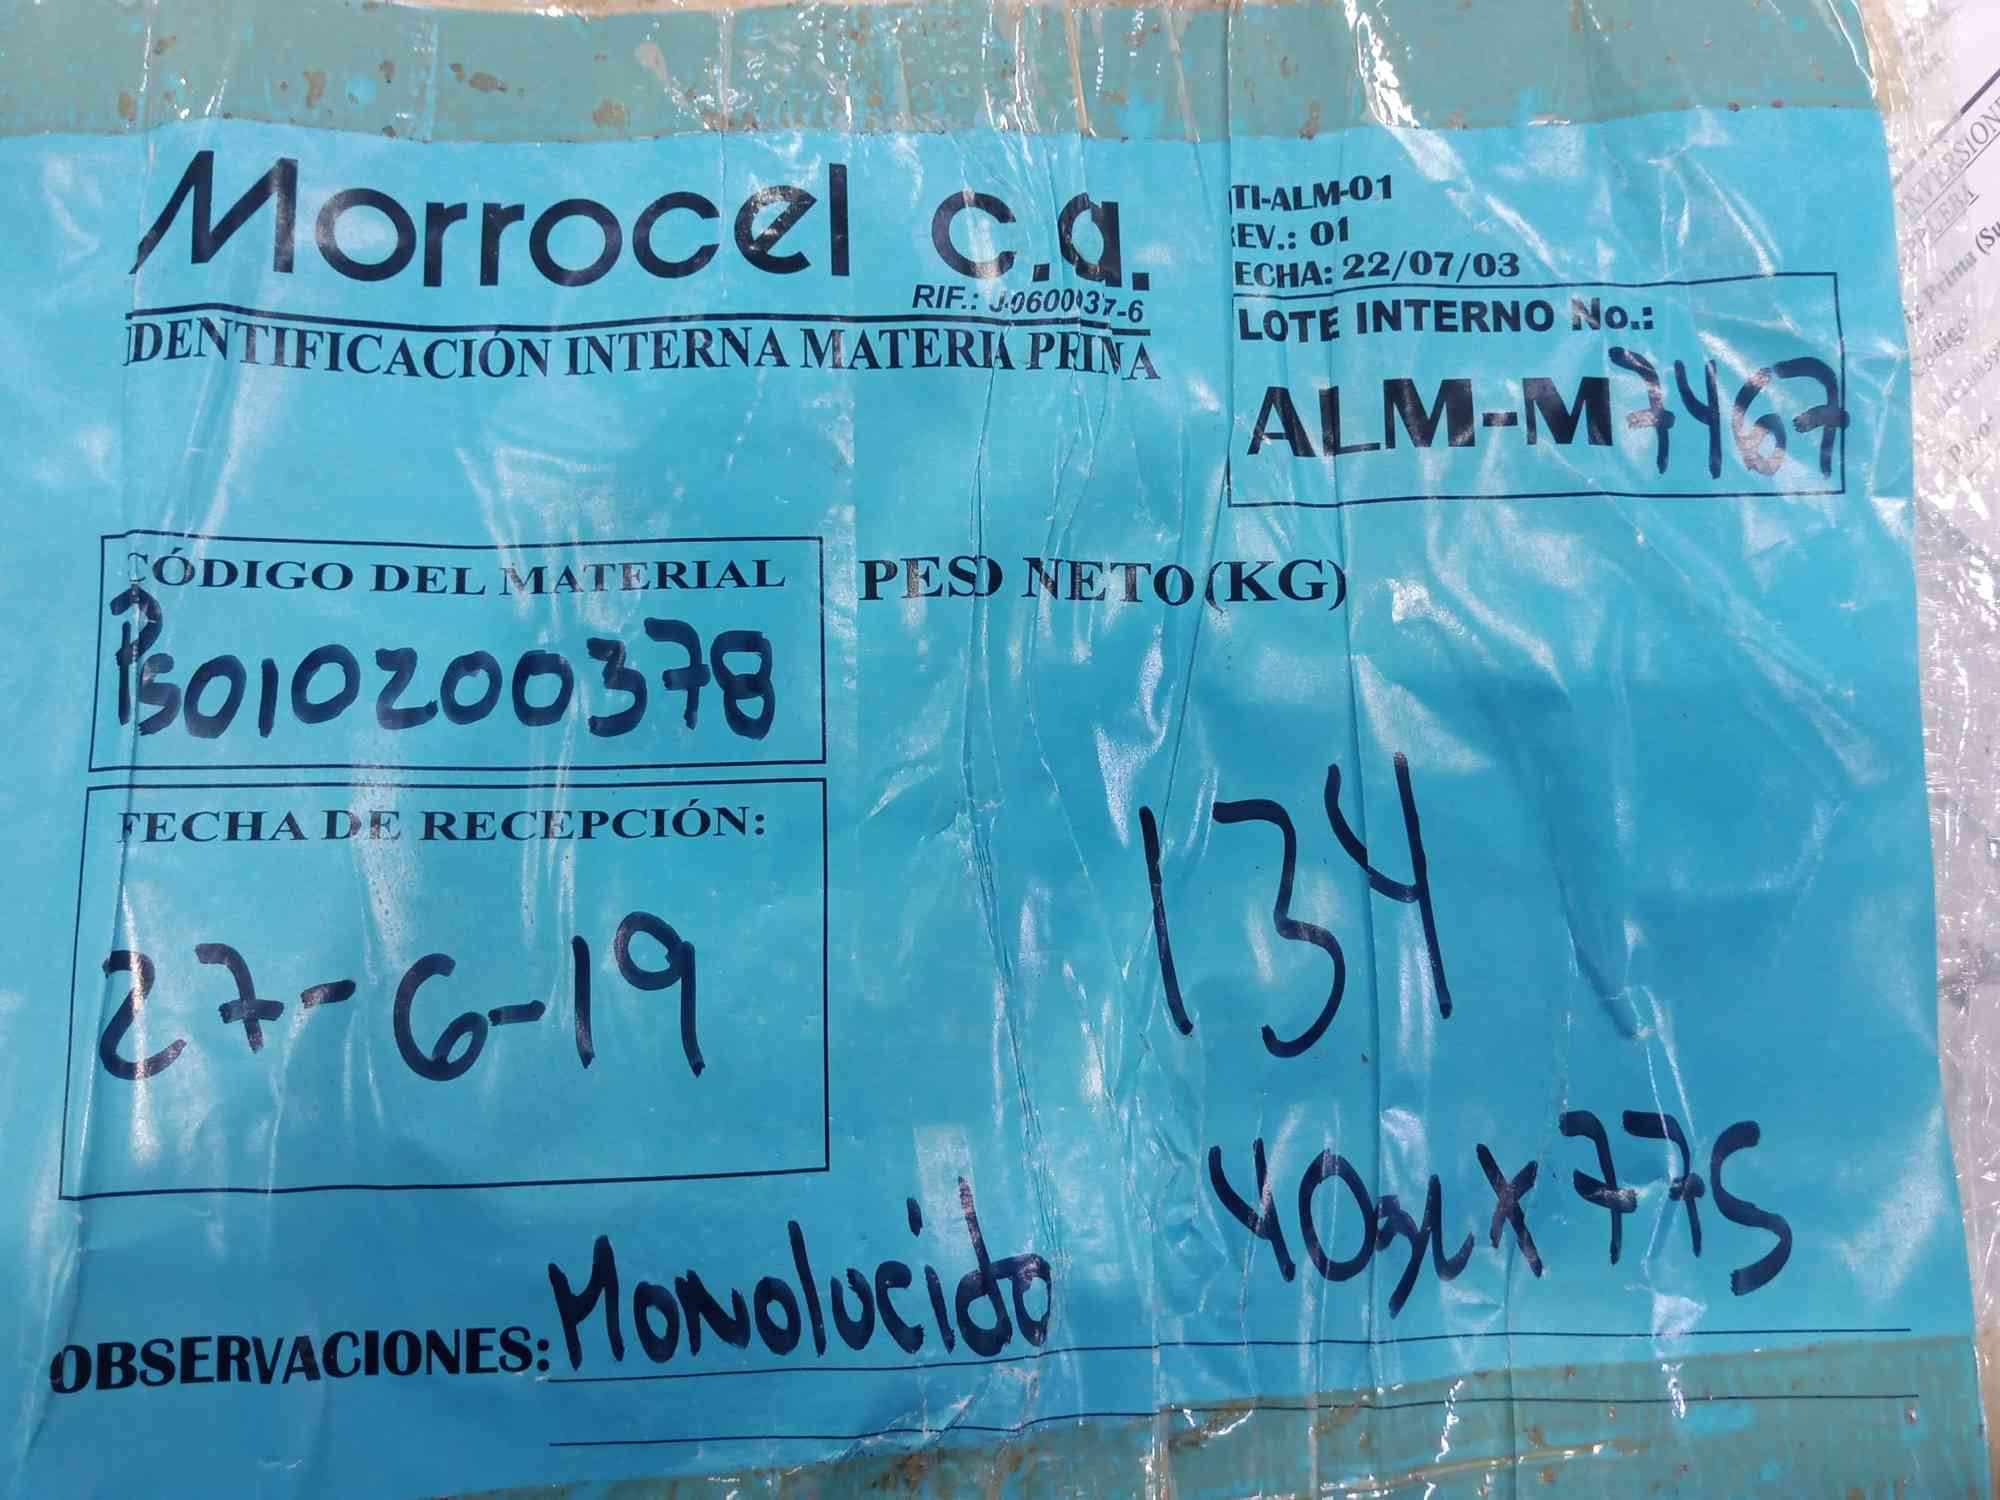 Morrocel c.a.
RIF.: J-0600137-6
IDENTIFICACIÓN INTERNA MATERIA PRIMA
TI-ALM-01
REV.: 01
FECHA: 22/07/03
LOTE INTERNO No.:
ALM-M7467
CÓDIGO DEL MATERIAL
PS010200378
PESO NETO (KG)
134
FECHA DE RECEPCIÓN:
27-6-19
40gr x 775
OBSERVACIONES: Monolucido
INVERSION
Prima (Su
Código